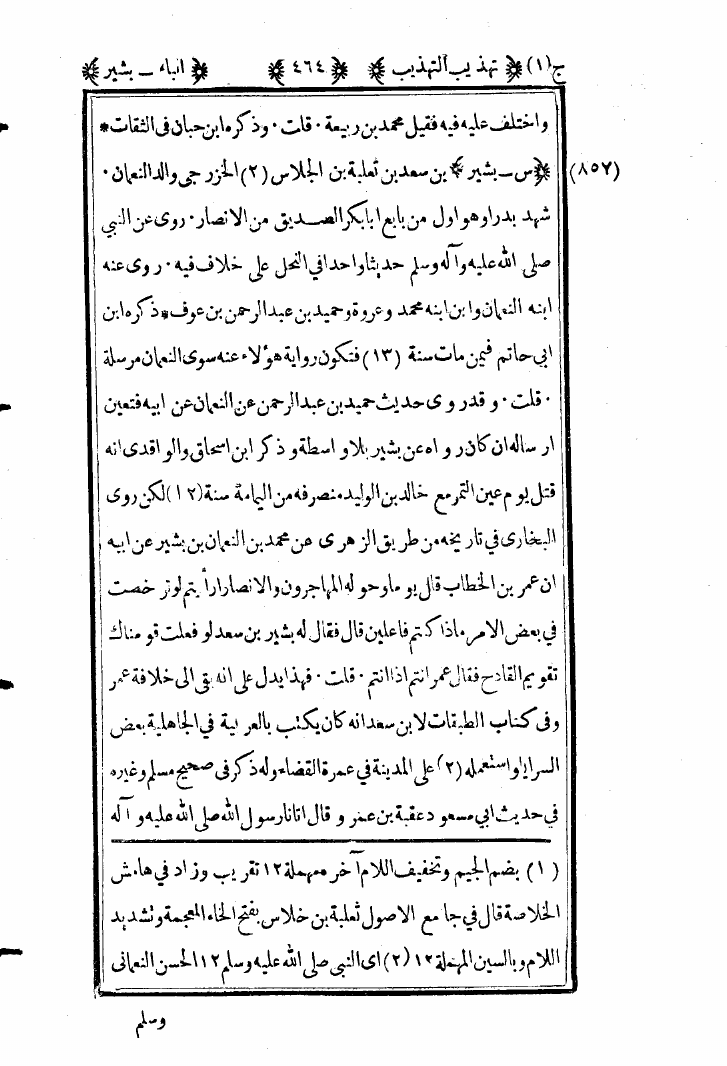 ج(١) ﴿ تهذيب التهذيب ﴾ ﴿ ٤٦٤ ﴾ ﴿ الباء – بشير ﴾
واختلف عليه فيه فقيل محمد بن ربيعة · قلت · وذكره ابن حبان فى الثقات *
(٨٥٧) ﴿ س – بشير ﴾ بن سعد بن ثعلبة بن الجلاس (٢) الخزرجى والد النعمان ·
شهد بدرا وهو اول من بايع ابا بكر الصديق من الانصار · روى عن النبي
صلى الله عليه وآله وسلم حديثا واحدا في النحل على خلاف فيه · روى عنه
ابنه النعمان وابن ابنه محمد وعروة وحميد بن عبد الرحمن بن عوف * ذكره ابن
ابى حاتم فيمن مات سنة (١٣) فتكون رواية هؤلاء عنه سوى النعمان مرسلة
· قلت · وقد روى حديث حميد بن عبد الرحمن عن النعمان عن ابيه فتعين
ارساله ان كان رواه عن بشير بلا واسطة وذكر ابن اسحاق والواقدى انه
قتل يوم عين التمر مع خالد بن الوليد منصرفه من اليمامة سنة (١٢) لكن روى
البخارى في تاريخه من طريق الزهرى عن محمد بن النعمان بن بشير عن ابيه
ان عمر بن الخطاب قال يوما وحوله المهاجرون والانصار ارأيتم لو ترخصت
في بعض الامر ماذا كنتم فاعلين قال فقال له بشير بن سعد لو فعلت قومناك
تقويم القادح فقال عمر انتم اذا انتم · قلت · فهذا يدل على انه بقى الى خلافة عمر
وفى كتاب الطبقات لابن سعد انه كان يكتب بالعربية في الجاهلية بعض
السرايا واستعمله (٢) على المدينة في عمرة القضاء وله ذكر فى صحيح مسلم وغيره
في حديث ابي مسعود عقبة بن عمرو قال اتانا رسول الله صلى الله عليه وآله
(١) بضم الجيم وتخفيف اللام آخر مهملة ١٢ تقريب وزاد في هامش
الخلاصة قال في جامع الاصول ثعلبة بن خلاس بفتح الخاء المعجمة وتشديد
اللام وبالسين المهملة ١٢ (٢) اى النبي صلى الله عليه وسلم ١٢ الحسن النعمانى
وسلم